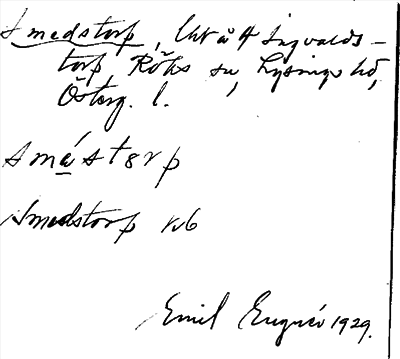 Smedstorp, Utå 4 Ingvalds-
torp, Röks sn, Lysings hd,
Österg. l.
smástorp
Smedstorp
Emil 1929.